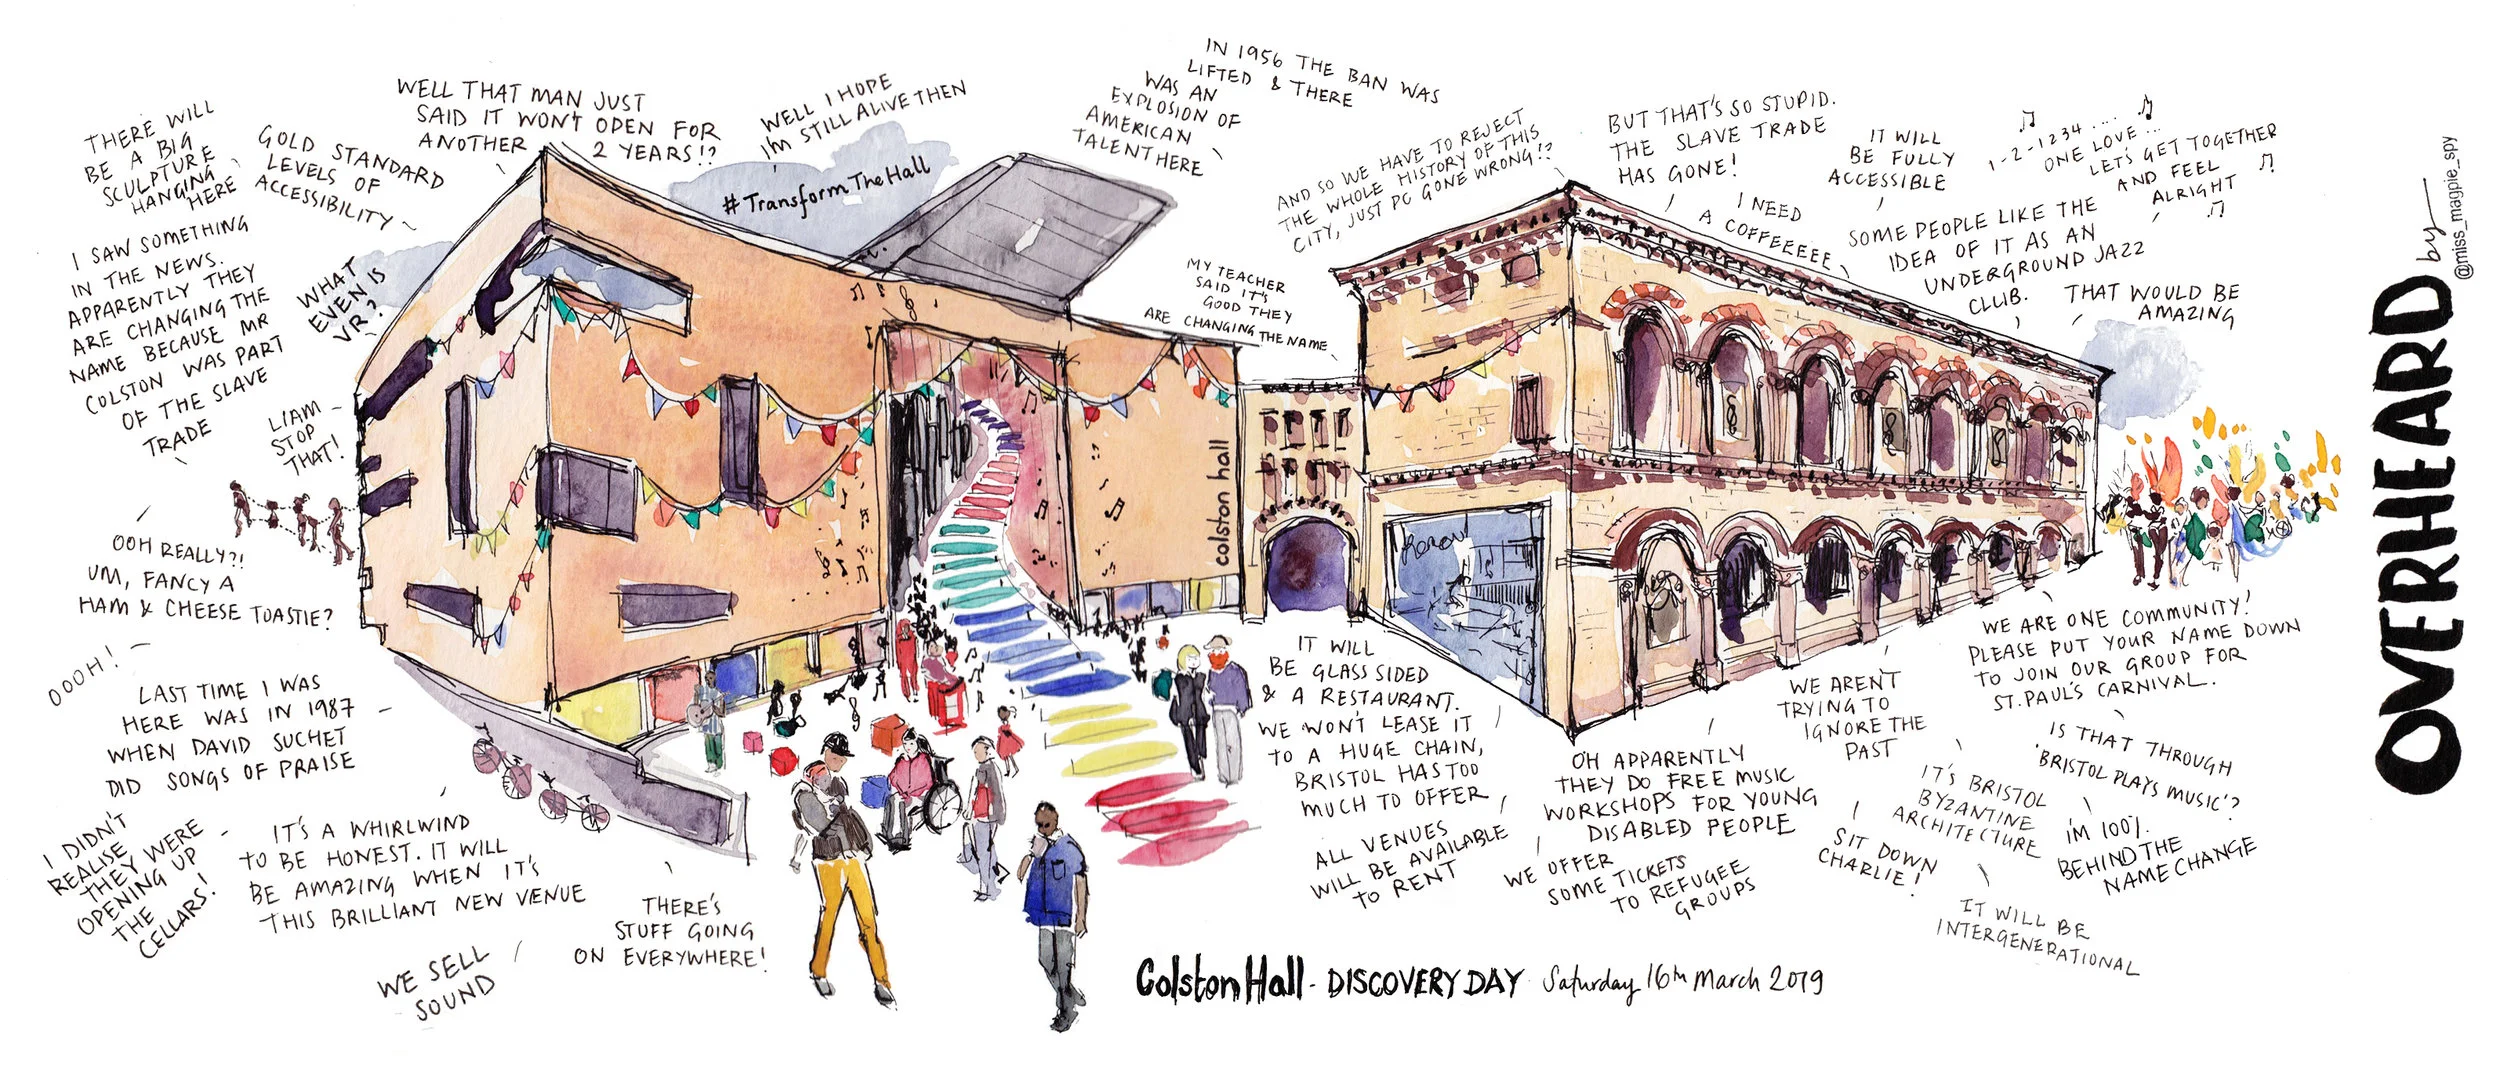 THERE WILL
BE A BIG
SCULPTURE
HANGING
HERE
GOLD STANDARD
LEVELS OF
ACCESSIBILITY
WELL THAT MAN JUST
SAID IT WON'T OPEN FOR
ANOTHER 2 YEARS!?
WELL I HOPE
I'M STILL ALIVE THEN
#TransformTheHall
IN 1956 THE BAN WAS
LIFTED & THERE
WAS AN
EXPLOSION OF
AMERICAN
TALENT HERE
I SAW SOMETHING
IN THE NEWS.
APPARENTLY THEY
ARE CHANGING THE
NAME BECAUSE MR
COLSTON WAS PART
OF THE SLAVE
TRADE
WHAT
EVEN IS
VR?
LIAM
STOP
THAT!
OOH REALLY?!
UM, FANCY A
HAM & CHEESE TOASTIE?
OOOH!
LAST TIME I WAS
HERE WAS IN 1987
WHEN DAVID SUCHET
DID SONGS OF PRAISE
I DIDN'T
REALISE
THEY WERE
OPENING UP
THE
CELLARS!
IT'S A WHIRLWIND
TO BE HONEST. IT WILL
BE AMAZING WHEN IT'S
THIS BRILLIANT NEW VENUE
WE SELL
SOUND
THERE'S
STUFF GOING
ON EVERYWHERE!
colston hall
MY TEACHER
SAID IT'S
GOOD THEY
ARE CHANGING THE NAME
AND SO WE HAVE TO REJECT
THE WHOLE HISTORY OF THIS
CITY, JUST PC GONE WRONG!?
BUT THAT'S SO STUPID.
THE SLAVE TRADE
HAS GONE!
I NEED
A COFFEEEEE
IT WILL
BE FULLY
ACCESSIBLE
1-2-1234....
ONE LOVE...
LET'S GET TOGETHER
AND FEEL
ALRIGHT
SOME PEOPLE LIKE THE
IDEA OF IT AS AN
UNDERGROUND JAZZ
CLUB.
THAT WOULD BE
AMAZING
IT WILL
BE GLASS SIDED
& A RESTAURANT.
WE WON'T LEASE IT
TO A HUGE CHAIN,
BRISTOL HAS TOO
MUCH TO OFFER
ALL VENUES
WILL BE AVAILABLE
TO RENT
OH APPARENTLY
THEY DO FREE MUSIC
WORKSHOPS FOR YOUNG
DISABLED PEOPLE
WE OFFER
SOME TICKETS
TO REFUGEE
GROUPS
WE AREN'T
TRYING TO
IGNORE THE
PAST
WE ARE ONE COMMUNITY!
PLEASE PUT YOUR NAME DOWN
TO JOIN OUR GROUP FOR
ST. PAUL'S CARNIVAL.
IS THAT THROUGH
'BRISTOL PLAYS MUSIC'?
IT'S BRISTOL
BYZANTINE
ARCHITECTURE
SIT DOWN
CHARLIE!
I'M 100%
BEHIND THE
NAME CHANGE
IT WILL BE
INTERGENERATIONAL
Colston Hall - DISCOVERY DAY Saturday 16th March 2019
OVERHEARD by
@miss_magpie_spy